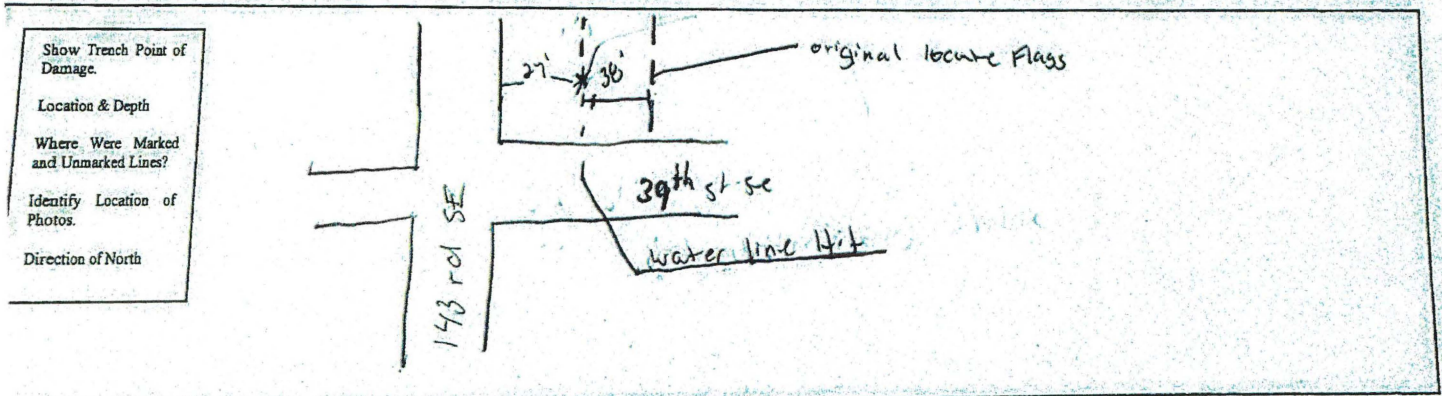 Show Trench Point of
Damage.
Location & Depth
Where Were Marked
and Unmarked Lines?
Identify Location of
Photos.
Direction of North
27'
38'
original locate Flags
39th st se
water line Hit
143 rd SE